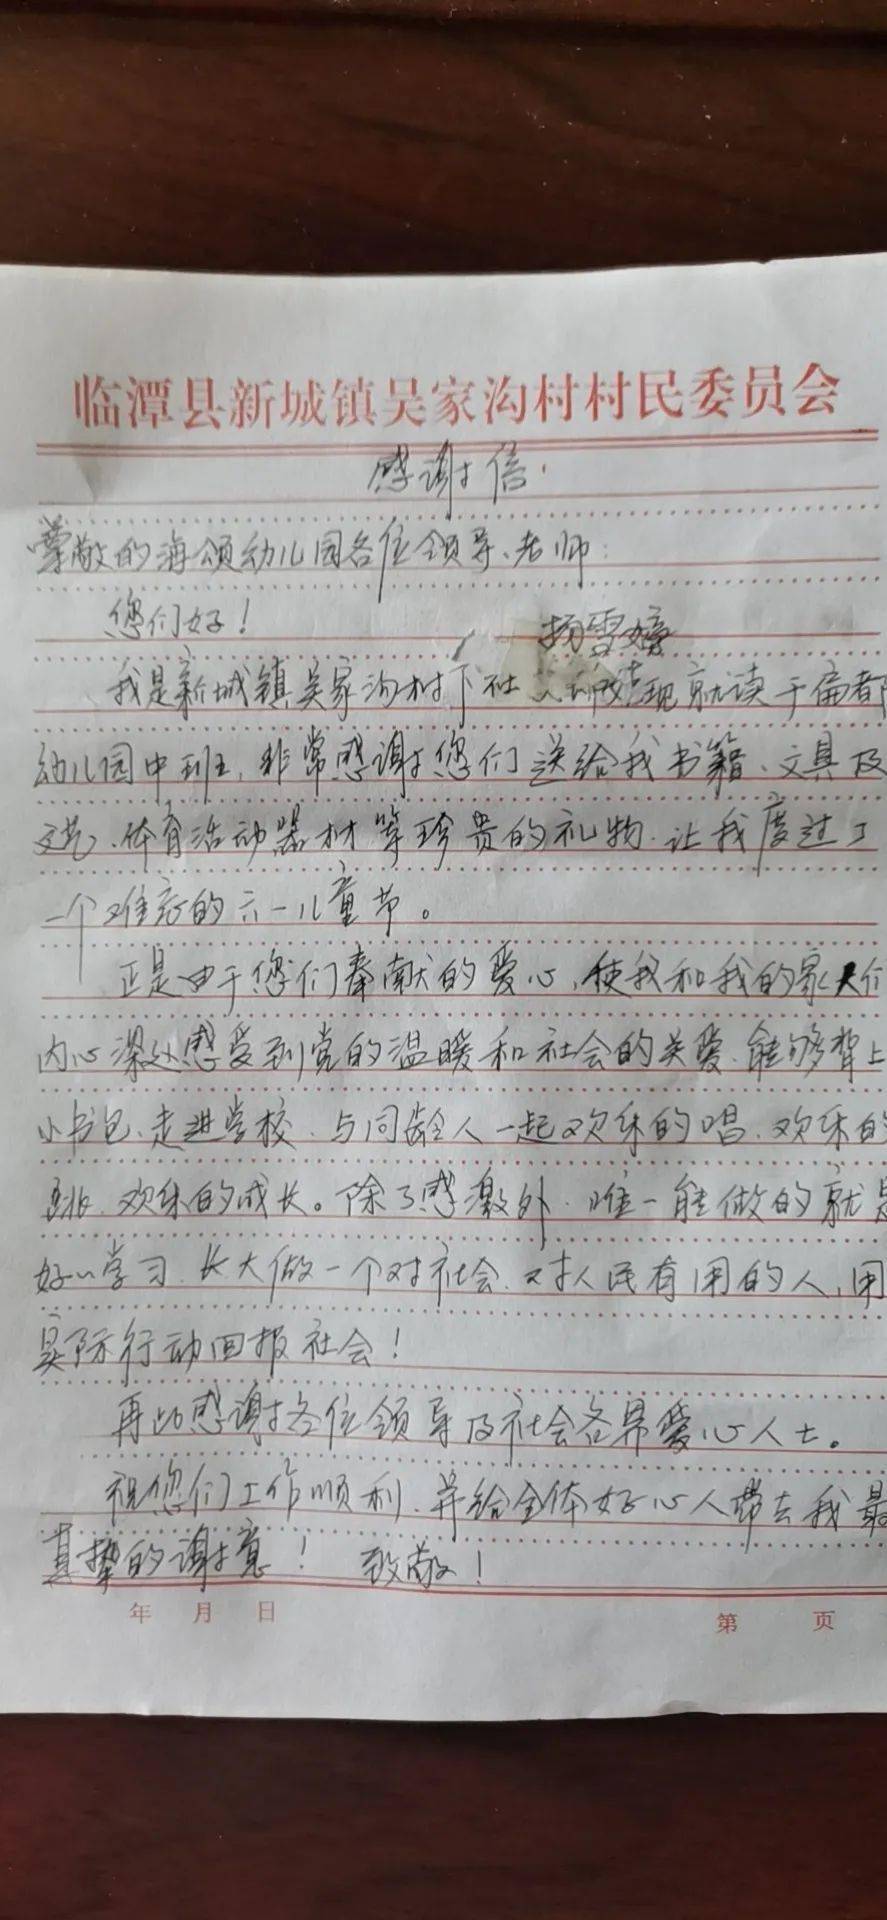 临潭县新城镇吴家沟村村民委员会
感谢信
尊敬的海颂幼儿园各位领导、老师:
您们好!
杨雪婷
我是新城镇吴家沟村下社 现就读于扁都
幼儿园中班,非常感谢您们送给我书籍、文具及
文艺、体育活动器材等珍贵的礼物.让我度过了
一个难忘的六一儿童节。
正是由于您们奉献的爱心,使我和我的家人们
内心深处感受到党的温暖和社会的关爱.能够背上
小书包、走进学校.与同龄人一起欢乐的唱.欢乐的
跳.欢乐的成长。除了感激外.唯一能做的就是
好好学习.长大做一个对社会.对人民有用的人,用
实际行动回报社会!
再此感谢各位领导及社会各界爱心人士。
祝您们工作顺利.并给全体好心人带去我最
真挚的谢意! 致敬!
年 月 日
第 页